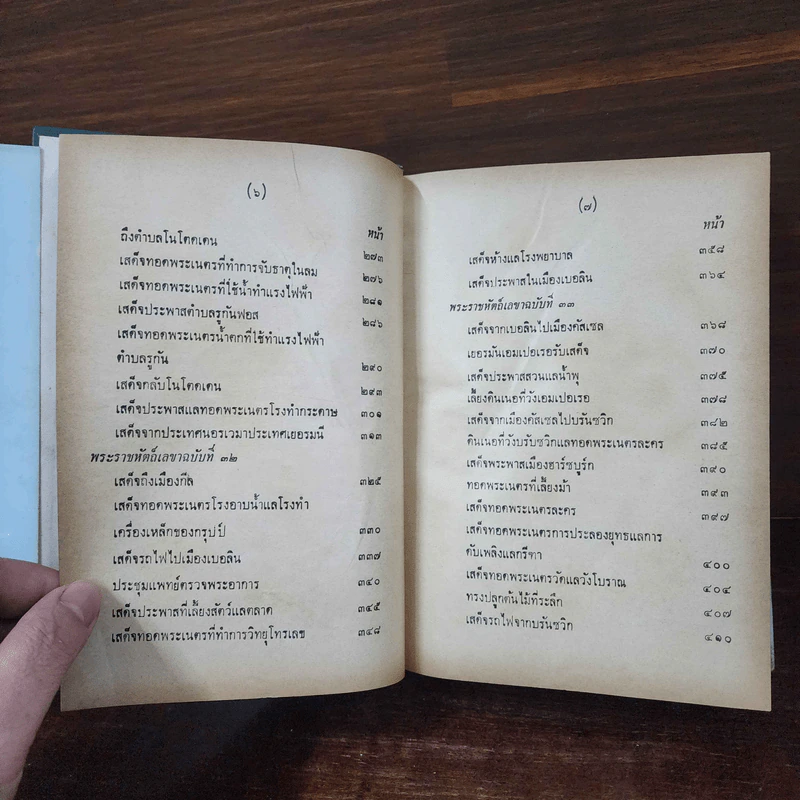 (๖)
หน้า
ถึงตำบลโนโตดเดน ๒๗๓
เสด็จทอดพระเนตรที่ทำการจับธาตุในลม ๒๗๖
เสด็จทอดพระเนตรที่ใช้น้ำทำแรงไฟฟ้า ๒๘๑
เสด็จประพาสตำบลรูกันฟอส ๒๘๖
เสด็จทอดพระเนตรน้ำตกที่ใช้ทำแรงไฟฟ้า
ตำบลรูกัน ๒๙๐
เสด็จกลับโนโตดเดน ๒๙๓
เสด็จประพาสแลทอดพระเนตรโรงทำกระดาษ ๓๐๑
เสด็จจากประเทศนอรเวมาประเทศเยอรมนี ๓๑๓
พระราชหัตถ์เลขาฉบับที่ ๓๒
เสด็จถึงเมืองกีล ๓๒๕
เสด็จทอดพระเนตรโรงอาบน้ำแลโรงทำ
เครื่องเหล็กของกรุปป์ ๓๓๐
เสด็จรถไฟไปเมืองเบอลิน ๓๓๗
ประชุมแพทย์ตรวจพระอาการ ๓๔๐
เสด็จประพาสที่เลี้ยงสัตว์แลตลาด ๓๔๕
เสด็จทอดพระเนตรที่ทำการวิทยุโทรเลข ๓๔๘
(๗)
หน้า
เสด็จห้างแลโรงพยาบาล ๓๕๘
เสด็จประพาสในเมืองเบอลิน ๓๖๔
พระราชหัตถ์เลขาฉบับที่ ๓๓
เสด็จจากเบอลินไปเมืองคัสเซล ๓๖๘
เยอรมันเอมเปอเรอรับเสด็จ ๓๗๐
เสด็จประพาสสวนแลน้ำพุ ๓๗๕
เลี้ยงดินเนอที่วังเอมเปอเรอ ๓๗๘
เสด็จจากเมืองคัสเซลไปบรันซวิก ๓๘๒
ดินเนอที่วังบรันซวิกแลทอดพระเนตรละคร ๓๘๕
เสด็จพระพาสเมืองฮาร์ซบูร์ก ๓๙๐
ทอดพระเนตรที่เลี้ยงม้า ๓๙๓
เสด็จทอดพระเนตรละคร ๓๙๗
เสด็จทอดพระเนตรการประลองยุทธแลการ
ดับเพลิงแลกรีฑา ๔๐๐
เสด็จทอดพระเนตรวัดแลวังโบราณ ๔๐๔
ทรงปลูกต้นไม้ที่ระลึก ๔๐๗
เสด็จรถไฟจากบรันซวิก ๔๑๐